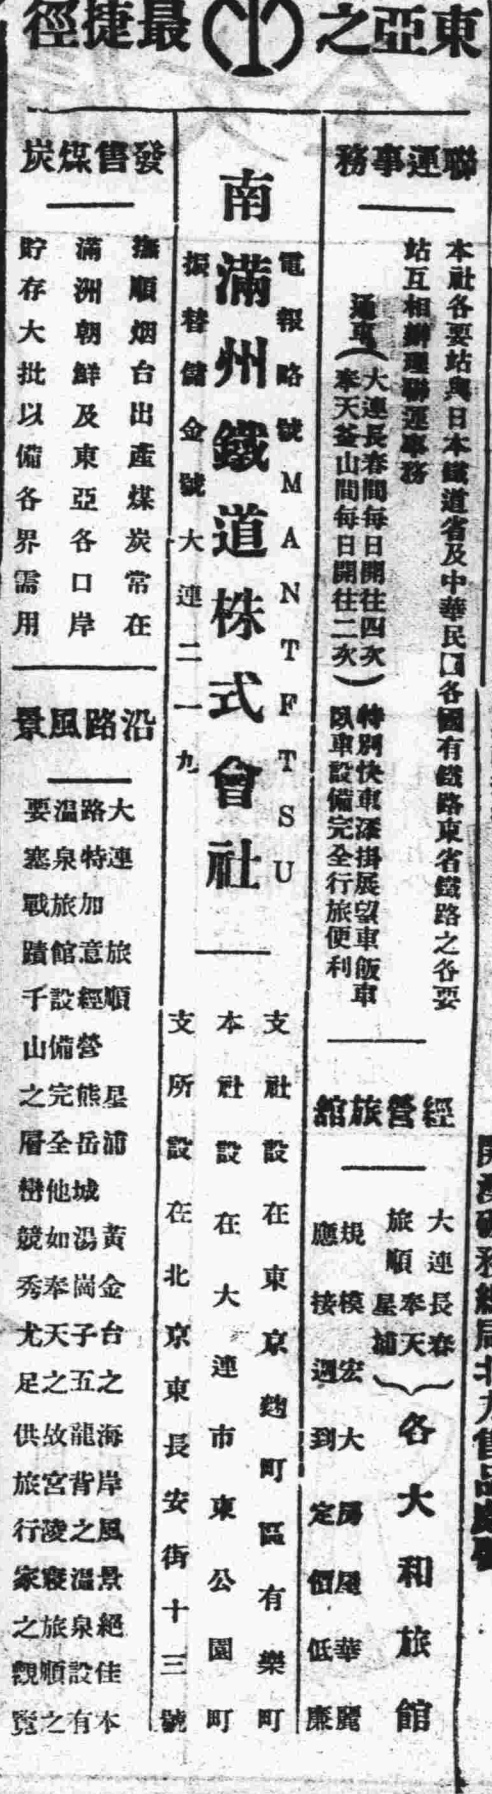 東亞之最捷徑
聯運事務
本社各要站與日本鐵道省及中華民國各國有鐵路東省鐵路之各要
站互相辦理聯運事務
通車(大連長春間每日開往四次
奉天釜山間每日開往二次)
特別快車添掛展望車飯車
臥車設備完全行旅便利
經營旅館
大連長春
旅順奉天
星浦
各大和旅館
規模宏大房屋華麗
應接週到定價低廉
電報略號MANTFTSU
南滿州鐵道株式會社
振替儲金號大連二一九
支社設在東京麹町區有樂町
本社設在大連市東公園町
支所設在北京東長安街十三號
發售煤炭
撫順烟台出產煤炭常在
滿洲朝鮮及東亞各口岸
貯存大批以備各界需用
沿路風景
大連 旅順 星浦 黃金台之海岸風景絕佳本
路特加意經營熊岳城湯崗子五龍背之溫泉設有
溫泉旅館設備完全他如奉天之故宮陵寢旅順之
要塞戰蹟千山之層巒競秀尤足供旅行家之觀覽